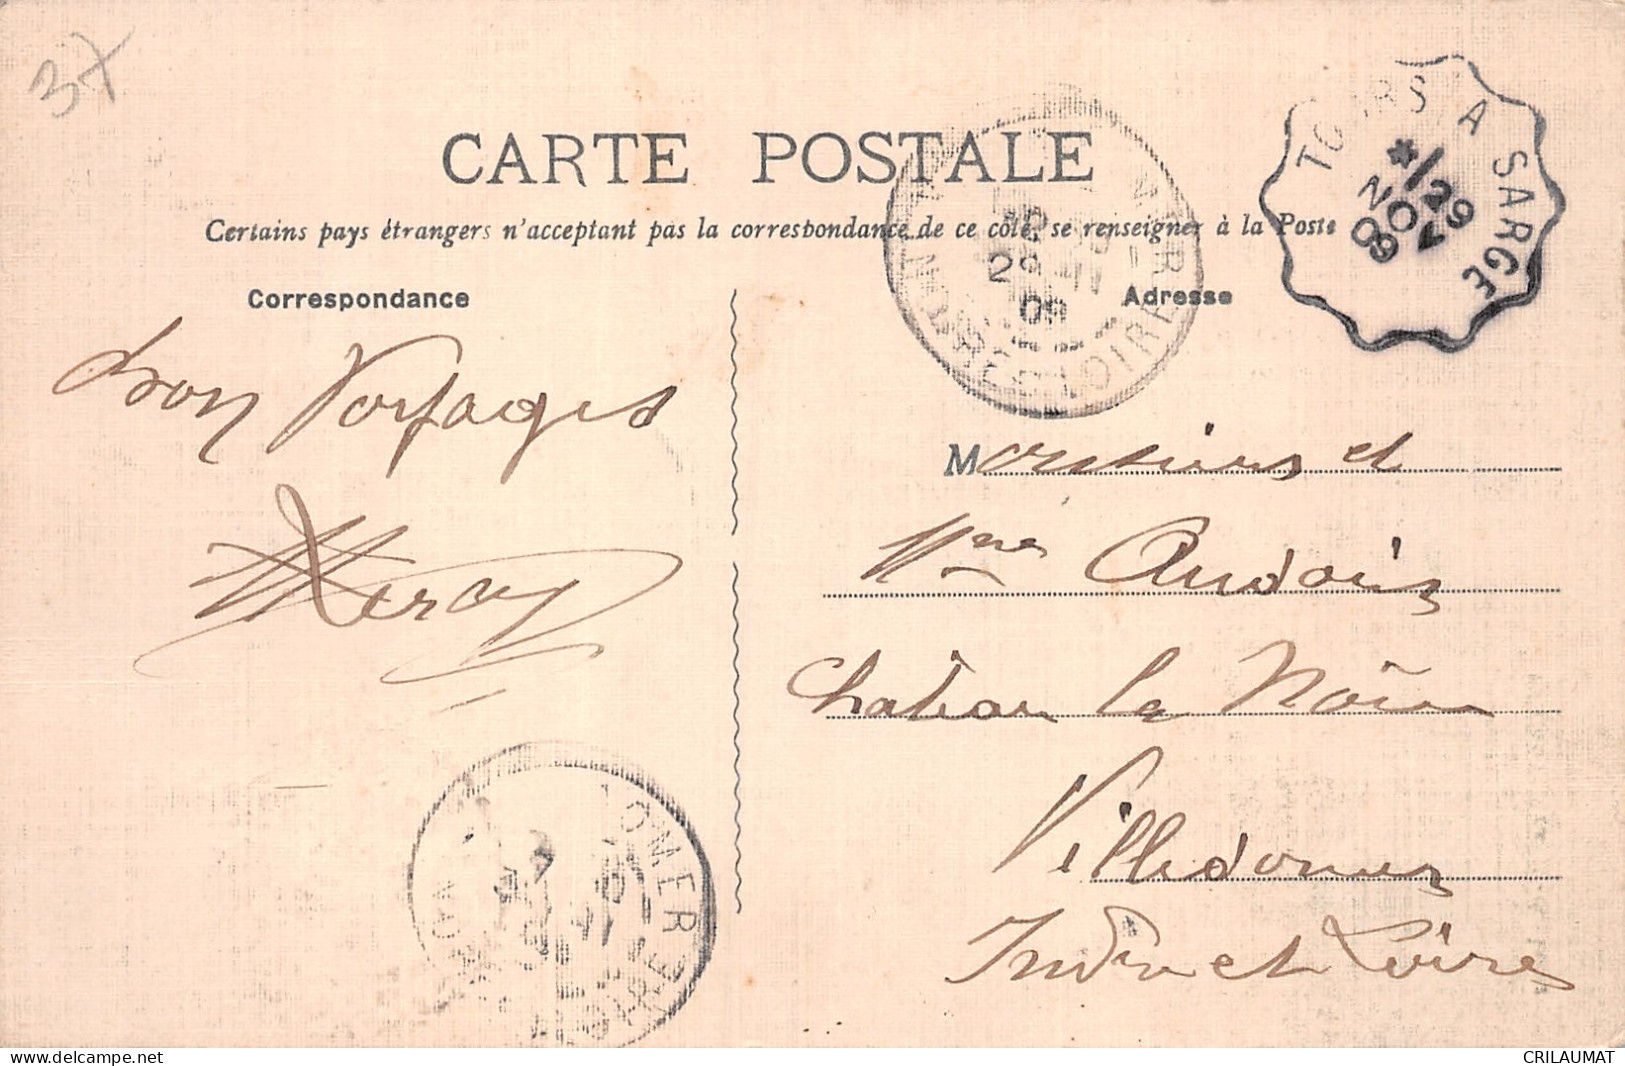 37
CARTE POSTALE
Certains pays étrangers n'acceptant pas la correspondance de ce côté, se renseigner à la Poste
TOURS A SARGE
*/29
NOV
09
Correspondance
Adresse
bon Voyages
Monsieurs et
Mme Audouis
Chateau la Noire
Villedomer
Indre et Loire
OMER
INDRE ET LOIRE
09
CRILAUMAT